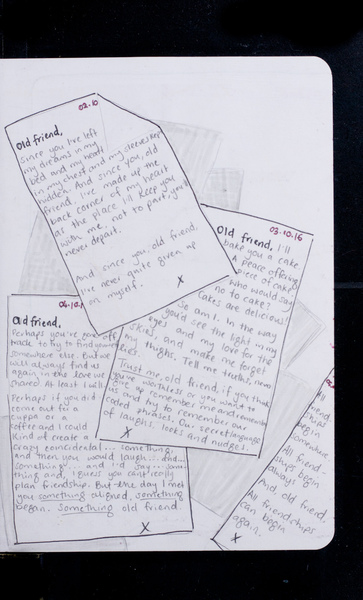 02.10
Old friend,
Since you I've left
my dreams in my
bed and my heart
in my chest and my sleeves kept
hidden. And since you, old
friend, I've made up the
back corner of my heart
as the place I'll keep you
with me, not to part, you'll
never depart.
And since you, old friend,
I've never quite given up
on myself.
x
03.10.16
Old friend, I'll
bake you a cake
A peace offering
piece of cake
who would say
no to cake?
Cakes are delicious
So am I. In the way
you'd see the light in my
eyes and my love for the
skies and make me forget
my thighs. Tell me truths, never
lies.
Trust me, old friend, if you think
you're worthless or you want to
give
us and try to remember our
coded phrases. Our secret language
of laughs, looks and nudges.
x
04.10.1
Old friend,
Perhaps you've gone off
track to try to find yourself
somewhere else. But we
will always find us
again in the love we
shared. At least I will.
Perhaps if you did
come out for a
cuppa or a
coffee and I could
kind of create a
crazy coincidental... something,
and then you would laugh... and...
something... and I'd say... some-
thing and, I guess you can't really
plan friendship. But the day I met
you something aligned, something
began. Something old friend.
x
friend,
ships
begin
somewhere
All friend-
ships begin
always
And old friend,
All friendships
can begin
again.
x